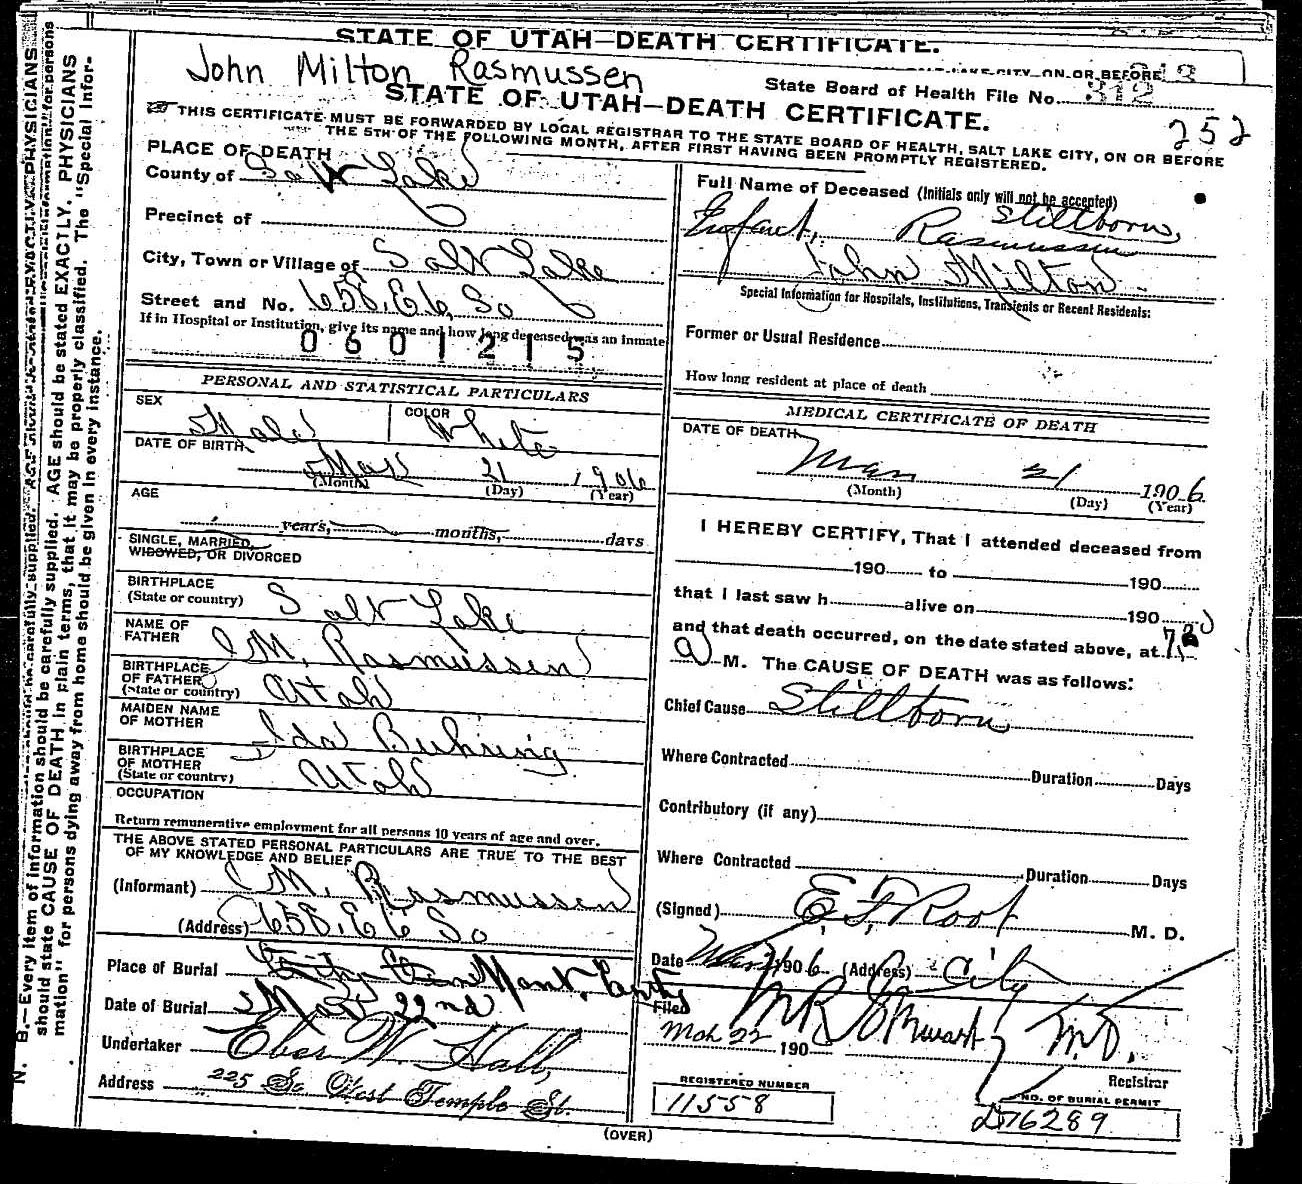 STATE OF UTAH—DEATH CERTIFICATE.
SALT LAKE CITY, ON OR BEFORE
John Milton Rasmussen
State Board of Health File No. 312
STATE OF UTAH—DEATH CERTIFICATE.
252
THIS CERTIFICATE MUST BE FORWARDED BY LOCAL REGISTRAR TO THE STATE BOARD OF HEALTH, SALT LAKE CITY, ON OR BEFORE
THE 5TH OF THE FOLLOWING MONTH, AFTER FIRST HAVING BEEN PROMPTLY REGISTERED.
PLACE OF DEATH
County of Salt Lake
Precinct of
City, Town or Village of Salt Lake
Street and No. 658, E 6, So
If in Hospital or Institution, give its name and how long deceased was an Inmate
0601215
PERSONAL AND STATISTICAL PARTICULARS
SEX Male
COLOR White
DATE OF BIRTH
Mar 21 1906
(Month) (Day) (Year)
AGE
years, months, days
SINGLE, MARRIED,
WIDOWED, OR DIVORCED
BIRTHPLACE
(State or country) Salt Lake
NAME OF
FATHER M. Rasmussen
BIRTHPLACE
OF FATHER
(State or country) Utah
MAIDEN NAME
OF MOTHER Ida Buhring
BIRTHPLACE
OF MOTHER
(State or country) Utah
OCCUPATION
Return remunerative employment for all persons 10 years of age and over.
THE ABOVE STATED PERSONAL PARTICULARS ARE TRUE TO THE BEST
OF MY KNOWLEDGE AND BELIEF
(Informant) M. Rasmussen
(Address) 658, E 6 So
Place of Burial City Cem Mont. Centy
Date of Burial Mar 22nd
Undertaker Eber W. Hall,
Address 225 So West Temple St.
Full Name of Deceased (Initials only will not be accepted)
Stillborn,
Enfant, Rasmussen
John Milton
Special Information for Hospitals, Institutions, Transients or Recent Residents:
Former or Usual Residence
How long resident at place of death
MEDICAL CERTIFICATE OF DEATH
DATE OF DEATH
Mar 21 1906
(Month) (Day) (Year)
I HEREBY CERTIFY, That I attended deceased from
190 to 190
that I last saw h alive on 190
and that death occurred, on the date stated above, at 7,
a M. The CAUSE OF DEATH was as follows:
Chief Cause Stillborn
Where Contracted Duration Days
Contributory (if any)
Where Contracted Duration Days
(Signed) E. F. Root M. D.
Date Mar 1906 (Address) City
Filed
Mch 22 190 M R Stewart M.D.
Registrar
REGISTERED NUMBER
11558
NO. OF BURIAL PERMIT
D76289
(OVER)
N. B.—Every item of information should be carefully supplied. AGE should be stated EXACTLY. PHYSICIANS
should state CAUSE OF DEATH in plain terms, that it may be properly classified. The "Special Infor-
mation" for persons dying away from home should be given in every instance.